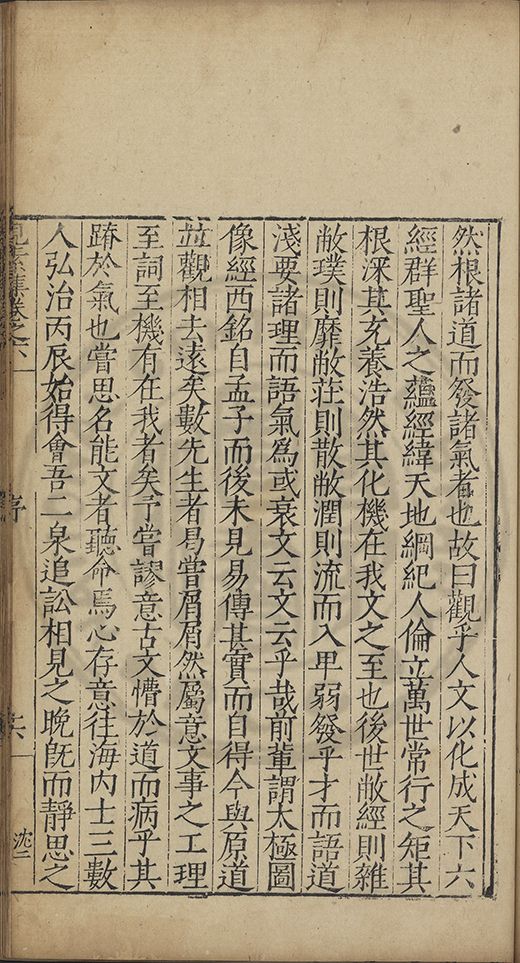 然根諸道而發諸氣者也故曰觀乎人文以化成天下六
經群聖人之蘊經緯天地綱紀人倫立萬世常行之矩其
根深其充養浩然其化機在我文之至也後世敝經則雜
敝璞則靡敝莊則散敝潤則流而入卑弱發乎才而語道
淺要諸理而語氣為或衰文云文云乎哉前輩謂太極圖
像經西銘自孟子而後未見易傳甚實而自得今與原道
並觀相去遠矣數先生者曷嘗屑屑然屬意文事之工理
至詞至機有在我者矣予嘗謬意古文懵於道而病乎其
踳於氣也嘗思名能文者聽命焉心存意往海内士三數
人弘治丙辰始得會吾二泉追訟相見之晚旣而靜思之
見素集卷之六
序
六
沈